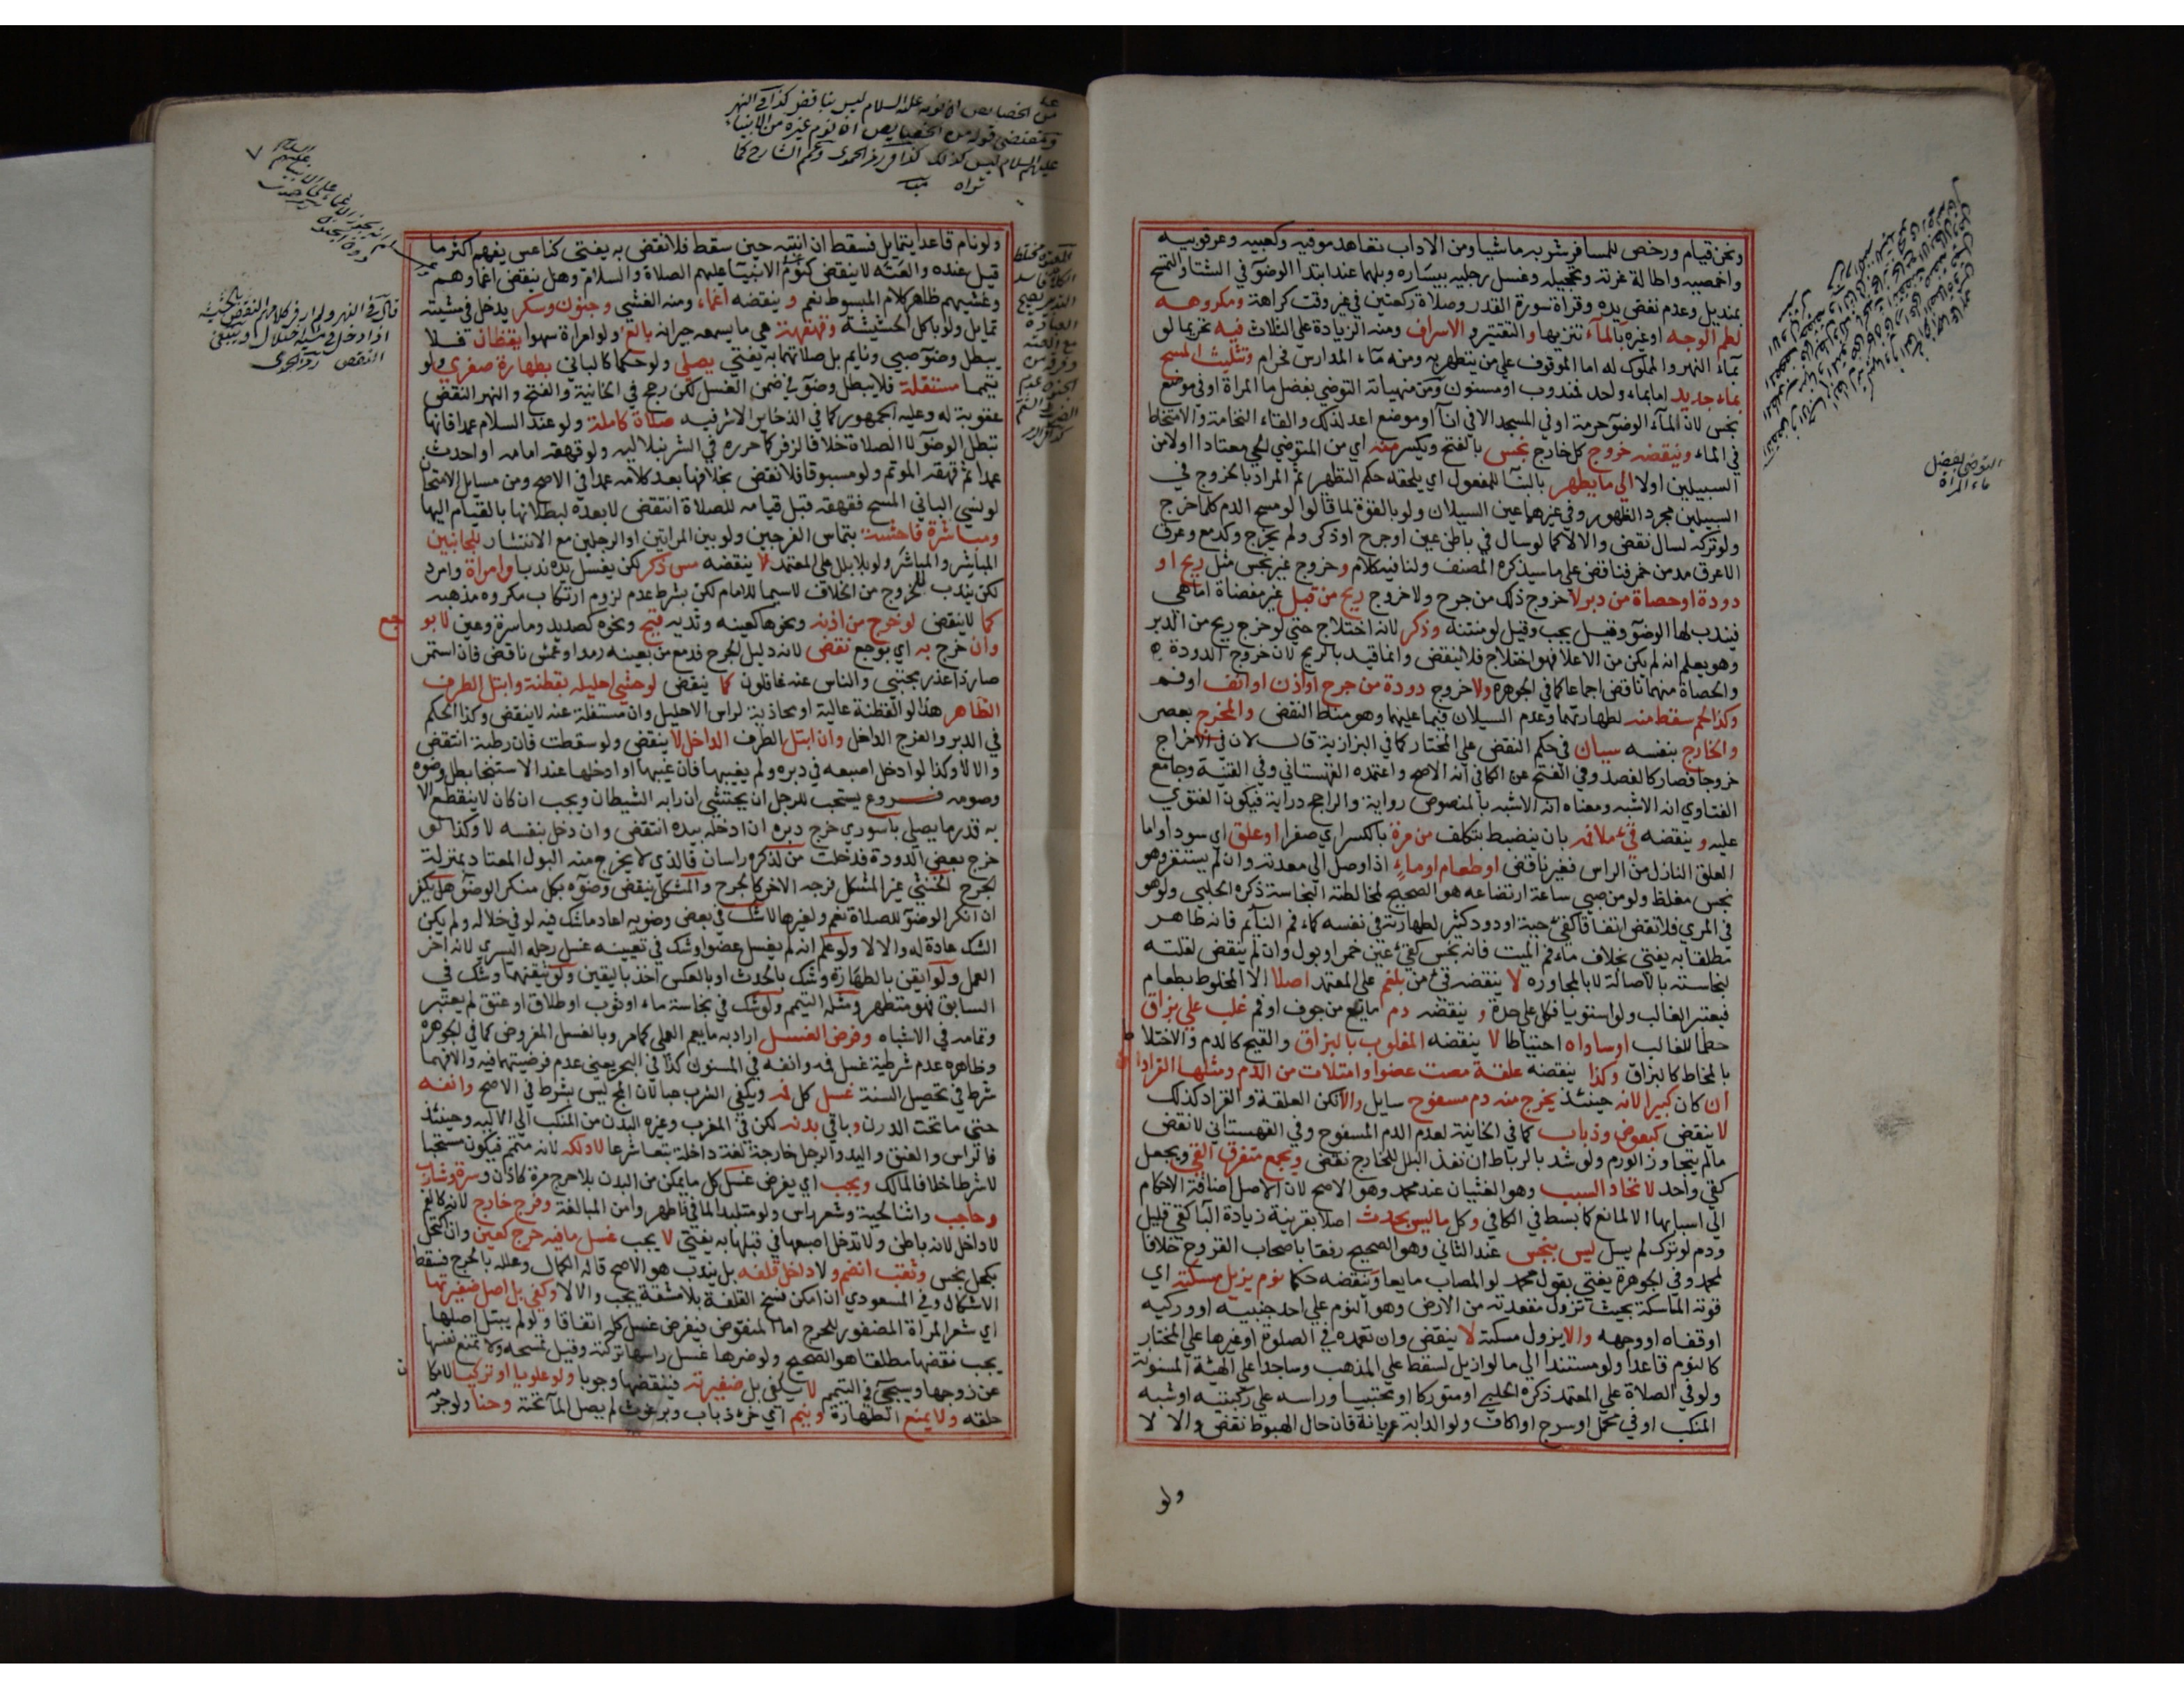 ونحن قيام ورخص للمسافر شربه ماشيا ومن الاداب تعاهد موقيه وكعبيه وعرقوبيه
واخمصيه واطالة غرته وتحجيله وغسل رجليه بيساره وبلهما عند ابتدا الوضوء في الشتا والتمسح
بمنديل وعدم نفض يده وقراة سورة القدر وصلاة ركعتين في غير وقت كراهة ومكروهه
لطم الوجه اوغيره بالمآء تنزيها والتقتير و الاسراف ومنه الزيادة على الثلاث فيه تحريما لو
بمآء النهر والمملوك له اما الموقوف علي من يتطهر به ومنه مآء المدارس فحرام وتثليث المسح
بماء جديد اما بماء واحد فمندوب او مسنون ومن منهياته التوضي بفضل ما المراة او في موضع
نجس لان لمآء الوضوء حرمة او في المسجد الا في انآ او موضع اعد لذلك والقاء النخامة والامتخاط
في الماء وينقضه خروج كل خارج نجس بالفتح ويكسر منه اي من المتوضي الحي معتادا اولا من
السبيلين اولا الي ما يطهر بالبنآ للمفعول اي يلحقه حكم التطهر ثم المراد بالخروج في
السبيلين مجرد الظهور وفي غيرهما عين السيلان ولو بالقوة لما قالوا لو مسح الدم كلما خرج
ولو تركه لسال نقض والا لا كما لو سال في باطن عين او جرح او ذكر ولم يخرج وكدمع وعرق
الا عرق مدمن خمر فناقض على ما سيذكره المصنف ولنا فيه كلام وخروج غير نجس مثل ريح او
دودة او حصاة من دبر لا خروج ذلك من جرح ولا خروج ريح من قبل غير مفضاة اما هي
فيندب لها الوضوء وقيل يجب وقيل لو منتنه وذكر لانه اختلاج حتي لو خرج ريح من الدبر
وهو يعلم انه لم يكن من الاعلا فهو اختلاج فلا ينقض وانما قيد بالريح لان خروج الدودة
والحصاة منهما ناقض اجماعا كما في الجوهرة ولا خروج دودة من جرح او اذن او انف او فم
وكذا لحم سقط منه لطهارتهما وعدم السيلان فيما عليهما وهو مناط النقض والمخرج بعصر
والخارج بنفسه سيان في حكم النقض علي المختار كما في البزازية قال لان في الاخراج
خروجا فصار كالفصد وفي الفتح عن الكافي انه الاصح واعتمده القهستاني وفي القنية وجامع
الفتاوي انه الاشبه ومعناه انه الاشبه بالمنصوص رواية والراجح دراية فيكون الفتوي
عليه و ينقضه قئ ملا فه بان يضبط بتكلف من مرة بالكسر اي صفرا او علق اي سودا واما
العلق النازل من الراس فغير ناقض او طعام او ماء اذا وصل الي معدته وان لم يستقر وهو
نجس مغلظ ولو من صبي ساعة ارتضاعه هو الصحيح لمخالطة النجاسة ذكره الحلبي ولو هو
في المري فلا نقض اتفاقا كقئ حية او دود كثير لطهارته في نفسه كماء فم النائم فانه طاهر
مطلقا به يفتي بخلاف ماء فم الميت فانه نجس كقئ عين خمر او بول وان لم ينقض لقلته
لنجاسته بالاصالة لا بالمجاورة لا ينقضه قئ من بلغم علي المعتمد اصلا الا المخلوط بطعام
فيعتبر الغالب ولو استويا فكل على حدة و ينقضه دم مايع من جوف او فم غلب علي بزاق
حكما للغالب او ساواه احتياطا لا ينقضه المغلوب بالبزاق والقيح كالدم والاختلا
بالمخاط كالبزاق وكذا ينقضه علقة مصت عضوا وامتلات من الدم ومثلها القراد
ان كان كبيرا لانه حينئذ يخرج منه دم مسفوح سايل والا تكن العلقة والقراد كذلك
لا ينقض كبعوض وذباب كما في الخانية لعدم الدم المسفوح وفي القهستاني لا نقض
ما لم يتجاوز الورم ولو شد بالرباط ان نفذ البلل للخارج نقض ويجمع متفرق القئ ويجعل
كقئ واحد لاتحاد السبب وهو الغثيان عند محمد وهو الاصح لان الاصل اضافة الاحكام
الي اسبابها الا لمانع كما بسط في الكافي وكل ما ليس بحدث اصلا بقرينة زيادة البا كقئ قليل
ودم لو ترك لم يسل ليس بنجس عند الثاني وهو الصحيح رفقا باصحاب القروح خلافا
لمحمد وفي الجوهرة يفتي بقول محمد لو المصاب مايعا وينقضه حكما نوم يزيل مسكته اي
قوته الماسكة بحيث تزول مقعدته من الارض وهو النوم علي احد جنبيه او وركيه
او قفاه او وجهه والا يزول مسكته لا ينقض وان تعمده في الصلوة او غيرها علي المختار
كالنوم قاعدا ولو مستندا الي ما لو ازيل لسقط علي المذهب وساجدا علي الهيئة المسنونة
ولو في الصلاة علي المعتمد ذكره الحلبي او متوركا او محتبيا وراسه علي ركبتيه او شبه
المنكب او في محمل او سرج او اكاف ولو الدابة عريانة فان حال الهبوط نقض والا لا
ولو
التوضي بفضل
ماء المراة
من الخصايص ان نومه عليه السلام ليس بناقض كذا في النهر
ومقتضى قوله من الخصايص ان نوم غيره من الانبياء
عليهم السلام ليس كذلك كذا في رمز الحموي وعمم الشارح كما
تراه
ولو نام قاعدا يتمايل فسقط ان انتبه حين سقط فلا نقض به يفتى كناعس يفهم اكثر ما
قيل عنده والعته لا ينقض كنوم الانبيآ عليهم الصلاة والسلام وهل ينقض اغماوهم
وغشيهم ظاهر كلام المبسوط نعم و ينقضه اغماء ومنه الغشي وجنون وسكر يدخل في مشيته
تمايل ولو باكل الحشيشة وقهقهة هي ما يسمعه جيرانه بالغ ولو امراة سهوا يقظان فلا
يبطل وضوء صبي ونايم بل صلاتهما به يفتي يصلي ولو حكما كالباني بطهارة صغري ولو
تيمما مستقلة فلا يبطل وضوء في ضمن الغسل لكن رجح في الخانية والفتح والنهر النقض
عقوبة له وعليه الجمهور كما في الذخاير الاشرفيه صلاة كاملة ولو عند السلام عمدا فانها
تبطل الوضوء لا الصلاة خلافا لزفر كما حرره في الشرنبلاليه ولو قهقه امامه او احدث
عمدا ثم قهقه الموتم ولو مسبوقا فلا نقض بخلافها بعد كلامه عمدا في الاصح ومن مسايل الامتحان
لو نسي الباني المسح فقهقه قبل قيامه للصلاة انتقض لا بعده لبطلانها بالقيام اليها
ومباشرة فاحشة بتماس الفرجين ولو بين المراتين او الرجلين مع الانتشار للجانبين
المباشر والمباشر ولو بلا بلل علي المعتمد لا ينقضه مس ذكر لكن يغسل يده ندبا وامراة وامرد
لكن يندب للخروج من الخلاف لا سيما للامام لكن بشرط عدم لزوم ارتكاب مكروه مذهبه
كما لا ينقض لو خرج من اذنه ونحوها كعينه وثديه قيح ونحوه كصديد وما سرة وعين لا بو
جع
وان خرج به اي بوجع نقض لانه دليل الجرح فدمع من بعينه رمد او عمش ناقض فان استمر
صار ذا عذر مجتبي والناس عنه غافلون كما ينقض لو حشي احليله بقطنة وابتل الطرف
الظاهر هذا لو القطنة عالية او محاذية لراس الاحليل وان متسفلة عنه لا ينقض وكذا الحكم
في الدبر والفرج الداخل وان ابتل الطرف الداخل لا ينقض ولو سقطت فان رطبة انتقض
والا لا وكذا لو ادخل اصبعه في دبره ولم يغيبها فان غيبها او ادخلها عند الاستنجا بطل وضوه
وصومه فـــروع يستحب للرجل ان يحتشي ان رابه الشيطان ويجب ان كان لا ينقطع الا
به قدر ما يصلي باسوري خرج دبره ان ادخله بيده انتقض وان دخل بنفسه لا وكذا لو
خرج بعض الدودة فدخلت من لذكره راسان فالذي لا يخرج منه البول المعتاد بمنزلة
الجرح الخنثي غير المشكل فرجه الاخر كالجرح والمشكل ينقض وضوءه بكل منكر الوضوء هل يكفر
ان انكر الوضوء للصلاة نعم ولغيرها لا شك في بعض وضويه اعاد ما شك فيه لو في خلاله ولم يكن
الشك عادة له والا لا ولو علم انه لم يغسل عضوا وشك في تعيينه غسل رجله اليسري لانه اخر
العمل ولو ايقن بالطهارة وشك بالحدث او بالعكس اخذ باليقين ولو تيقنهما وشك في
السابق فهو متطهر ومثله التيمم ولو شك في نجاسة ماء او ثوب او طلاق او عتق لم يعتبر
وتمامه في الاشباه وفرض الغسل اراد به ما يعم العملي كما مر وبالغسل المفروض كما في الجوهرة
وظاهره عدم شرطية غسل فمه وانفه في المسنون كذا في البحر يعني عدم فرضيتهما فيه والا فهما
شرط في تحصيل السنة غسل كل فمه ويكفي الشرب عبا لان المج ليس بشرط في الاصح وانفه
حتى ما تحت الدرن وباقي بدنه لكن في المغرب وغيره البدن من المنكب الي الالية وحينئذ
فالراس والعنق واليد والرجل خارجة لغة داخلة تبعا شرعا لا دلكه لانه متمم فيكون مستحبا
لا شرطا خلافا لمالك ويجب اي يفرض غسل كل ما يمكن من البدن بلا حرج مرة كاذن وسرة وشارب
وحاجب واثنا لحية وشعر راس ولو متلبدا لما في فاطهروا من المبالغة وفرج خارج لانه كالفم
لا داخل لانه باطن ولا تدخل اصبعها في قبلها به يفتي لا يجب غسل ما فيه حرج كعين وان اكتحل
بكحل نجس وثقب انضم و لا داخل قلفه بل يندب هو الاصح قاله الكمال وعلله بالحرج فسقط
الاشكال وفي المسعودي ان امكن فسخ القلفة بلا مشقة يجب والا لا وكفي بل اصل ضفيرتها
اي شعر المراة المضفور للحرج اما المنقوض فيفرض غسل كله اتفاقا ولو لم يبتل اصلها
يجب نقضها مطلقا هو الصحيح ولو ضرها غسل راسها تركته وقيل تمسحه ولا تمنع نفسها
عن زوجها وسيجئ في التيمم لا يكفي بل ضفيرته فينقضها وجوبا ولو علويا او تركيا لامكا
ن
حلقه ولا يمنع الطهارة ونيم اي خرء ذباب وبرغوث لم يصل المآ تحته وحنا ولو جرمه
قال في النهر ولم ار في كلامهم النقض بالحشيشة
اذا دخل في مشيته اختلال وينبغي
النقض رمز الحموي